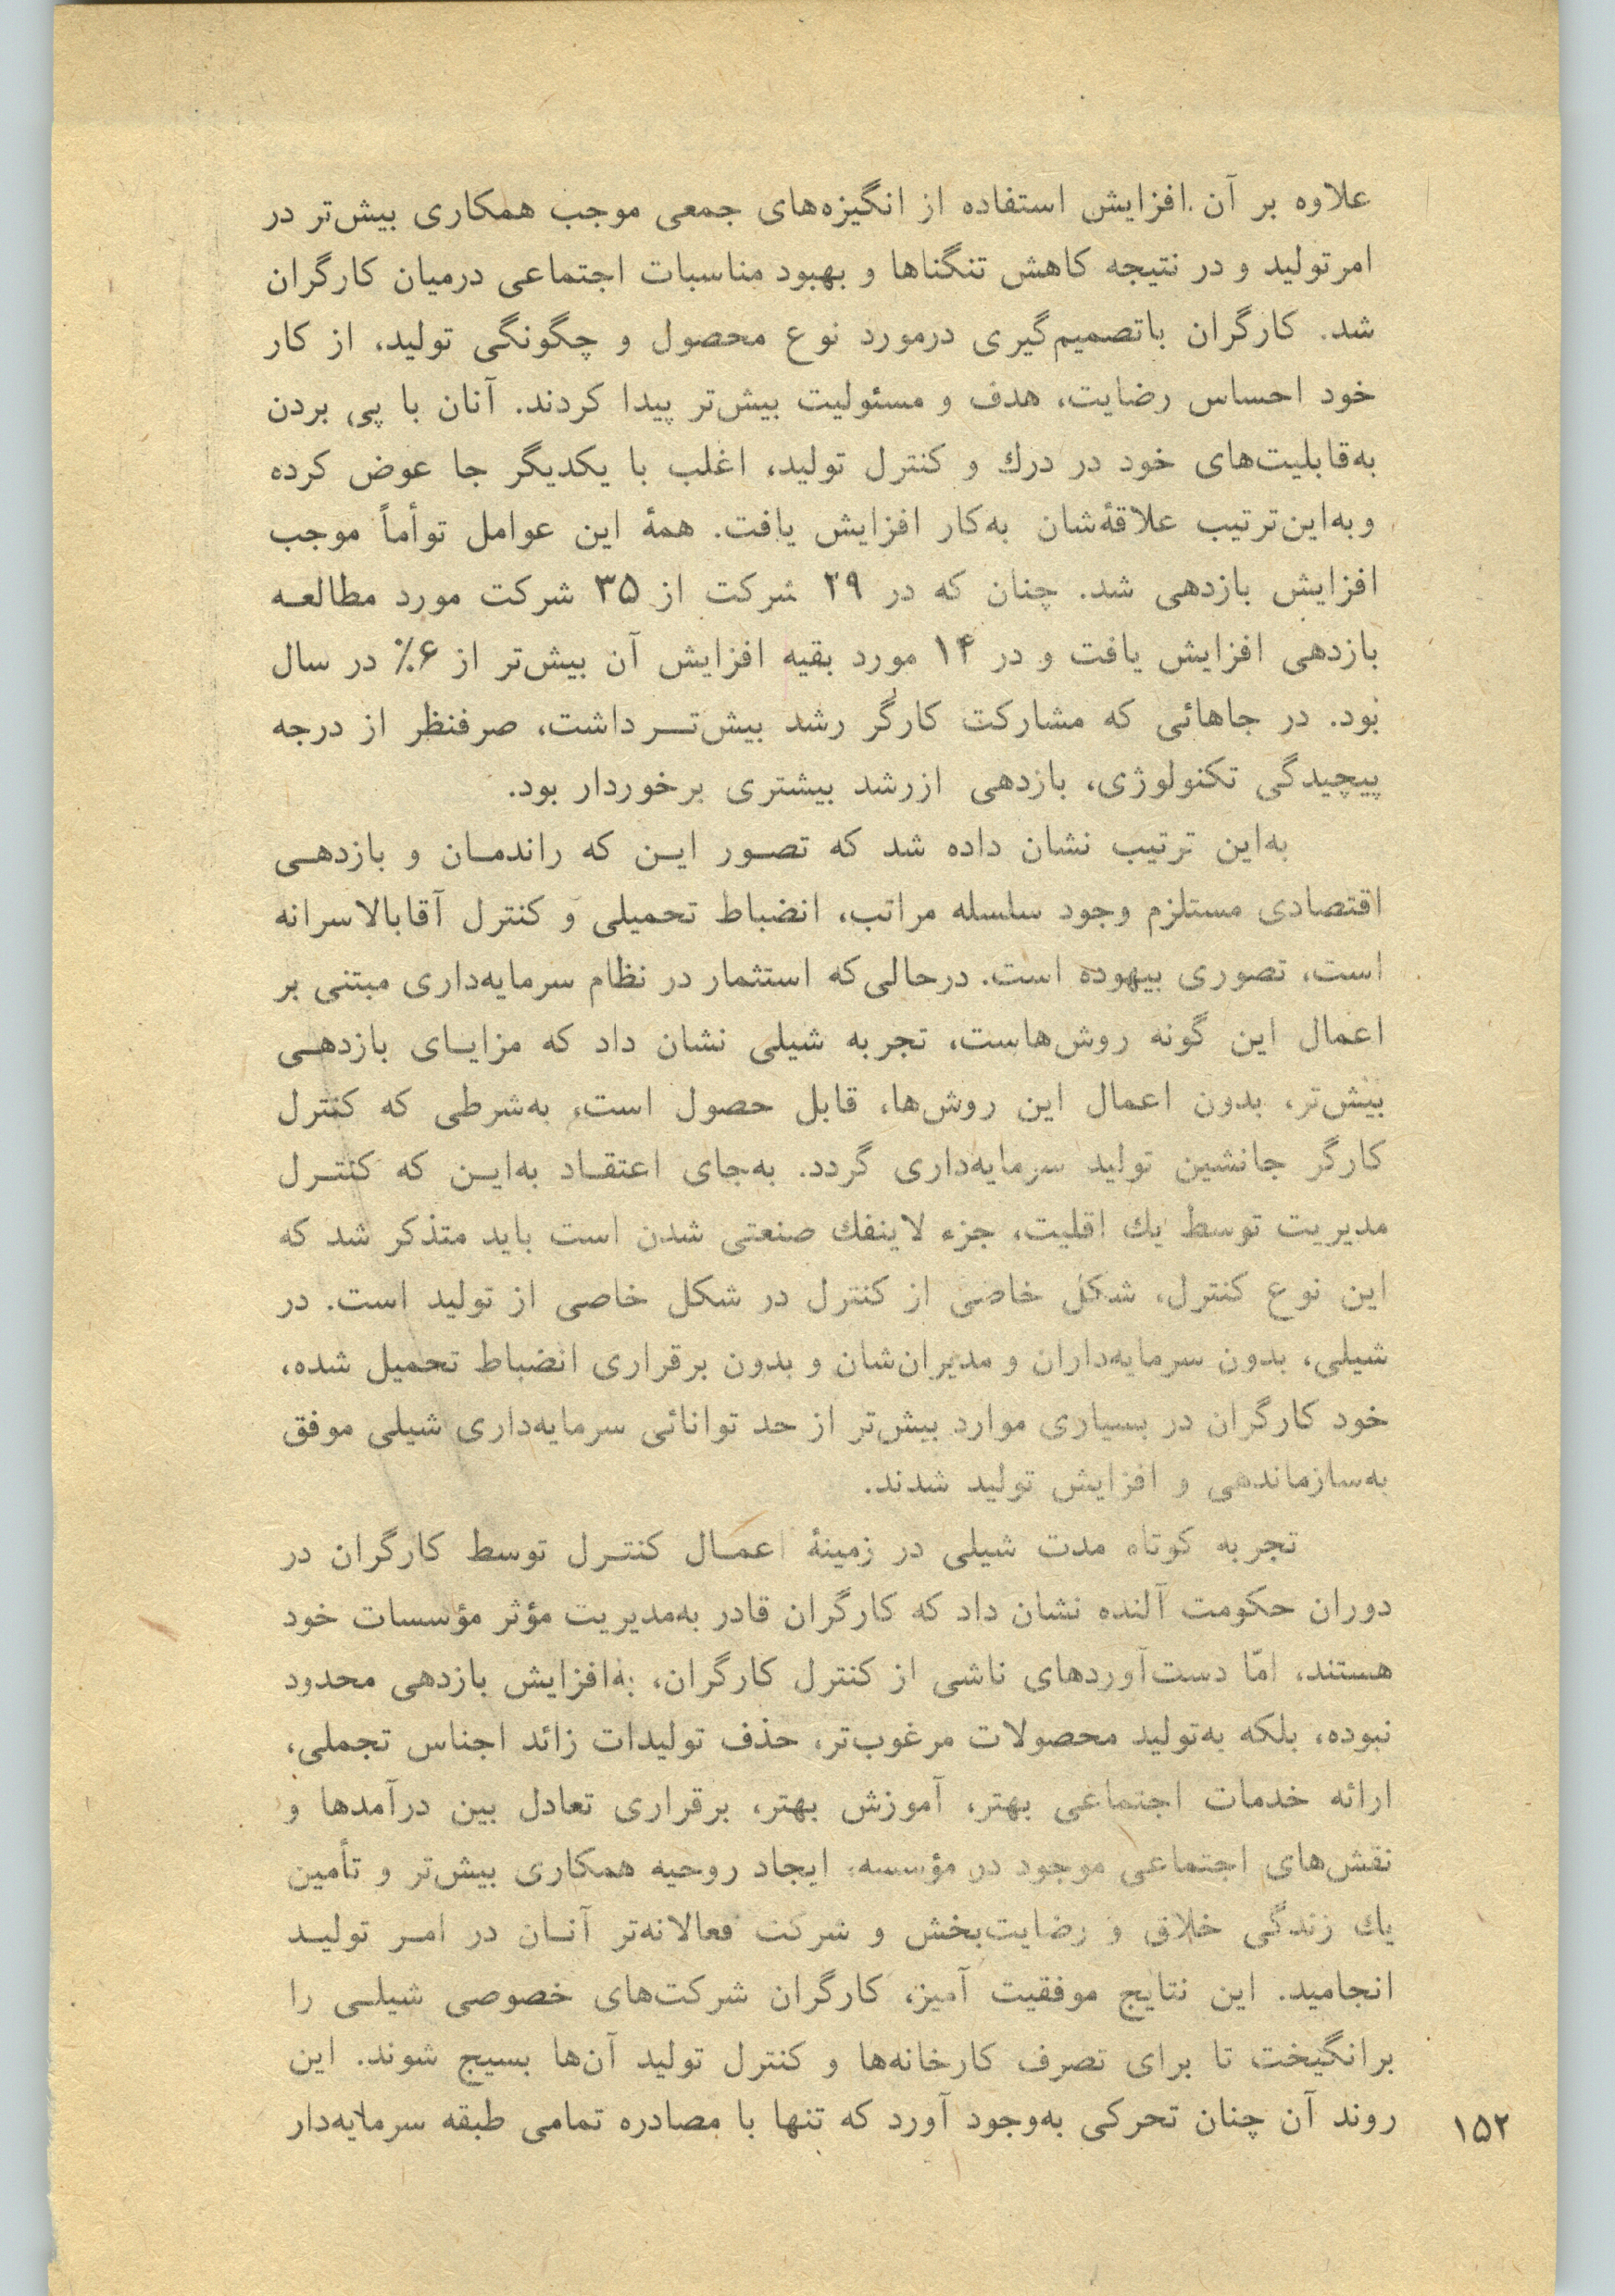 علاوه بر آن افزایش استفاده از انگیزه‌های جمعی موجب همکاری بیش‌تر در
امر تولید و در نتیجه کاهش تنگناها و بهبود مناسبات اجتماعی درمیان کارگران
شد. کارگران باتصمیم‌گیری درمورد نوع محصول و چگونگی تولید، از کار
خود احساس رضایت، هدف و مسئولیت بیش‌تر پیدا کردند. آنان با پی بردن
به‌قابلیت‌های خود در درك و کنترل تولید، اغلب با یکدیگر جا عوض کرده
وبه‌این‌ترتیب علاقهٔ‌شان به‌کار افزایش یافت. همهٔ این عوامل توأماً موجب
افزایش بازدهی شد. چنان که در ۲۹ شرکت از ۳۵ شرکت مورد مطالعـه
بازدهی افزایش یافت و در ۱۴ مورد بقیه افزایش آن بیش‌تر از ۶٪ در سال
بود. در جاهائی که مشارکت کارگر رشد بیش‌تــر داشت، صرفنظر از درجه
پیچیدگی تکنولوژی، بازدهی ازرشد بیشتری برخوردار بود.
به‌این ترتیب نشان داده شد که تصـور ایـن که راندمـان و بازدهـی
اقتصادی مستلزم وجود سلسله مراتب، انضباط تحمیلی و کنترل آقابالاسرانه
است، تصوری بیهوده است. درحالی‌که استثمار در نظام سرمایه‌داری مبتنی بر
اعمال این گونه روش‌هاست، تجربه شیلی نشان داد که مزایـای بازدهـی
بیش‌تر، بدون اعمال این روش‌ها، قابل حصول است، به‌شرطی که کنترل
کارگر جانشین تولید سرمایه‌داری گردد. به‌جای اعتقـاد به‌ایـن که کنتـرل
مدیریت توسط یك اقلیت، جزء لاینفك صنعتی شدن است باید متذکر شد که
این نوع کنترل، شکل خاصی از کنترل در شکل خاصی از تولید است. در
شیلی، بدون سرمایه‌داران و مدیران‌شان و بدون برقراری انضباط تحمیل شده،
خود کارگران در بسیاری موارد بیش‌تر از حد توانائی سرمایه‌داری شیلی موفق
به‌سازماندهی و افزایش تولید شدند.
تجربه کوتاه مدت شیلی در زمینهٔ اعمـال کنتـرل توسط کارگران در
دوران حکومت آلنده نشان داد که کارگران قادر به‌مدیریت مؤثر مؤسسات خود
هستند، امّا دست‌آوردهای ناشی از کنترل کارگران، به‌افزایش بازدهی محدود
نبوده، بلکه به‌تولید محصولات مرغوب‌تر، حذف تولیدات زائد اجناس تجملی،
ارائه خدمات اجتماعی بهتر، آموزش بهتر، برقراری تعادل بین درآمدها و
نقش‌های اجتماعی موجود در مؤسسه، ایجاد روحیه همکاری بیش‌تر و تأمین
یك زندگی خلاق و رضایت‌بخش و شرکت فعالانه‌تر آنـان در امـر تولیـد
انجامید. این نتایج موفقیت آمیز، کارگران شرکت‌های خصوصی شیلـی را
برانگیخت تا برای تصرف کارخانه‌ها و کنترل تولید آن‌ها بسیج شوند. این
روند آن چنان تحرکی به‌وجود آورد که تنها با مصادره تمامی طبقه سرمایه‌دار
۱۵۲